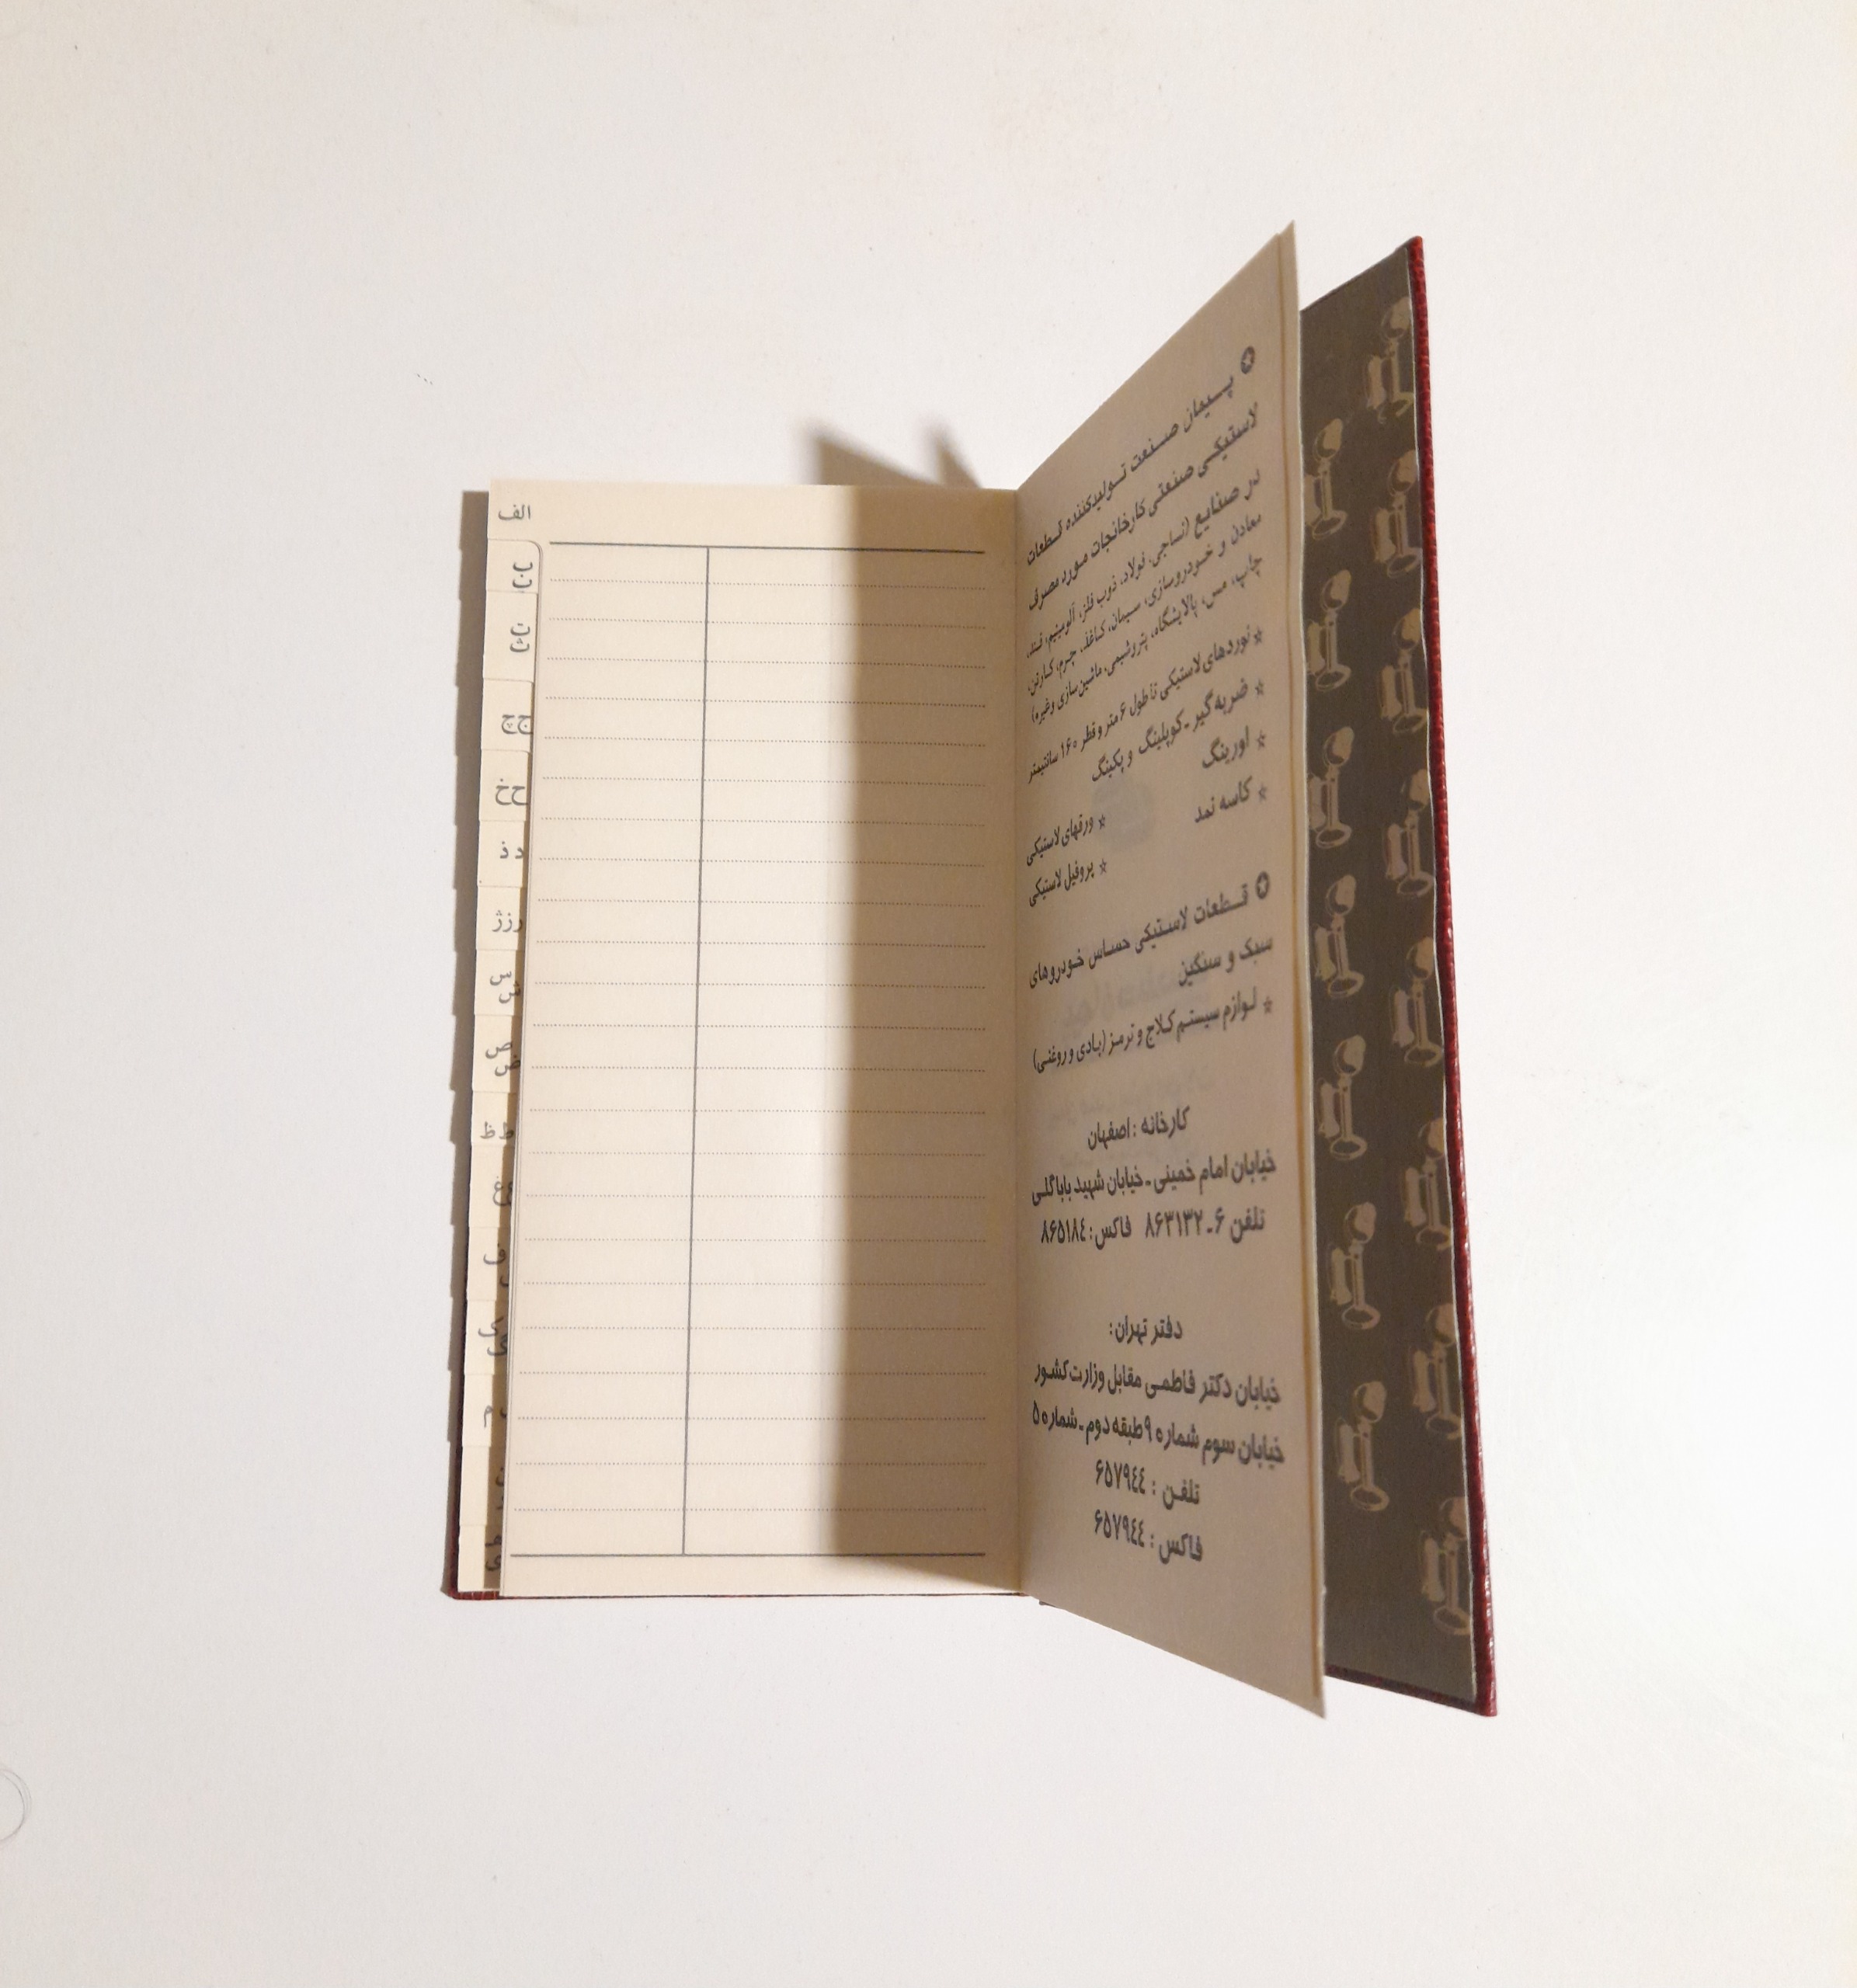 ✪ پیمان صنعت تولیدکننده قطعات
لاستیکی صنعتی کارخانجات مورد مصرف
در صنایع (نساجی، فولاد، ذوب فلز، آلومینیم، قند،
معادن و خودروسازی، سیمان، کاغذ، چرم، کارتن،
چاپ، مس، پالایشگاه، پتروشیمی، ماشین سازی و غیره)
☆ نوردهای لاستیکی تا طول ۶ متر و قطر ۱۶۰ سانتیمتر
☆ ضربه گیر - کوپلینگ و پکینگ
☆ اورینگ
☆ کاسه نمد
☆ ورقهای لاستیکی
☆ پروفیل لاستیکی
✪ قطعات لاستیکی حساس خودروهای
سبک و سنگین
☆ لوازم سیستم کلاج و ترمز (بادی و روغنی)
کارخانه : اصفهان
خیابان امام خمینی - خیابان شهید باباگلی
تلفن ۶-۸۶۳۱۳۲ فاکس: ۸۶۵۱۸۴
دفتر تهران:
خیابان دکتر فاطمی مقابل وزارت کشور
خیابان سوم شماره ۹ طبقه دوم - شماره ۵
تلفن : ۶۵۷۹۴۴
فاکس : ۶۵۷۹۴۴
الف
ج چ
ح خ
د ذ
ر ز ژ
س
ش
ص
ض
ط ظ